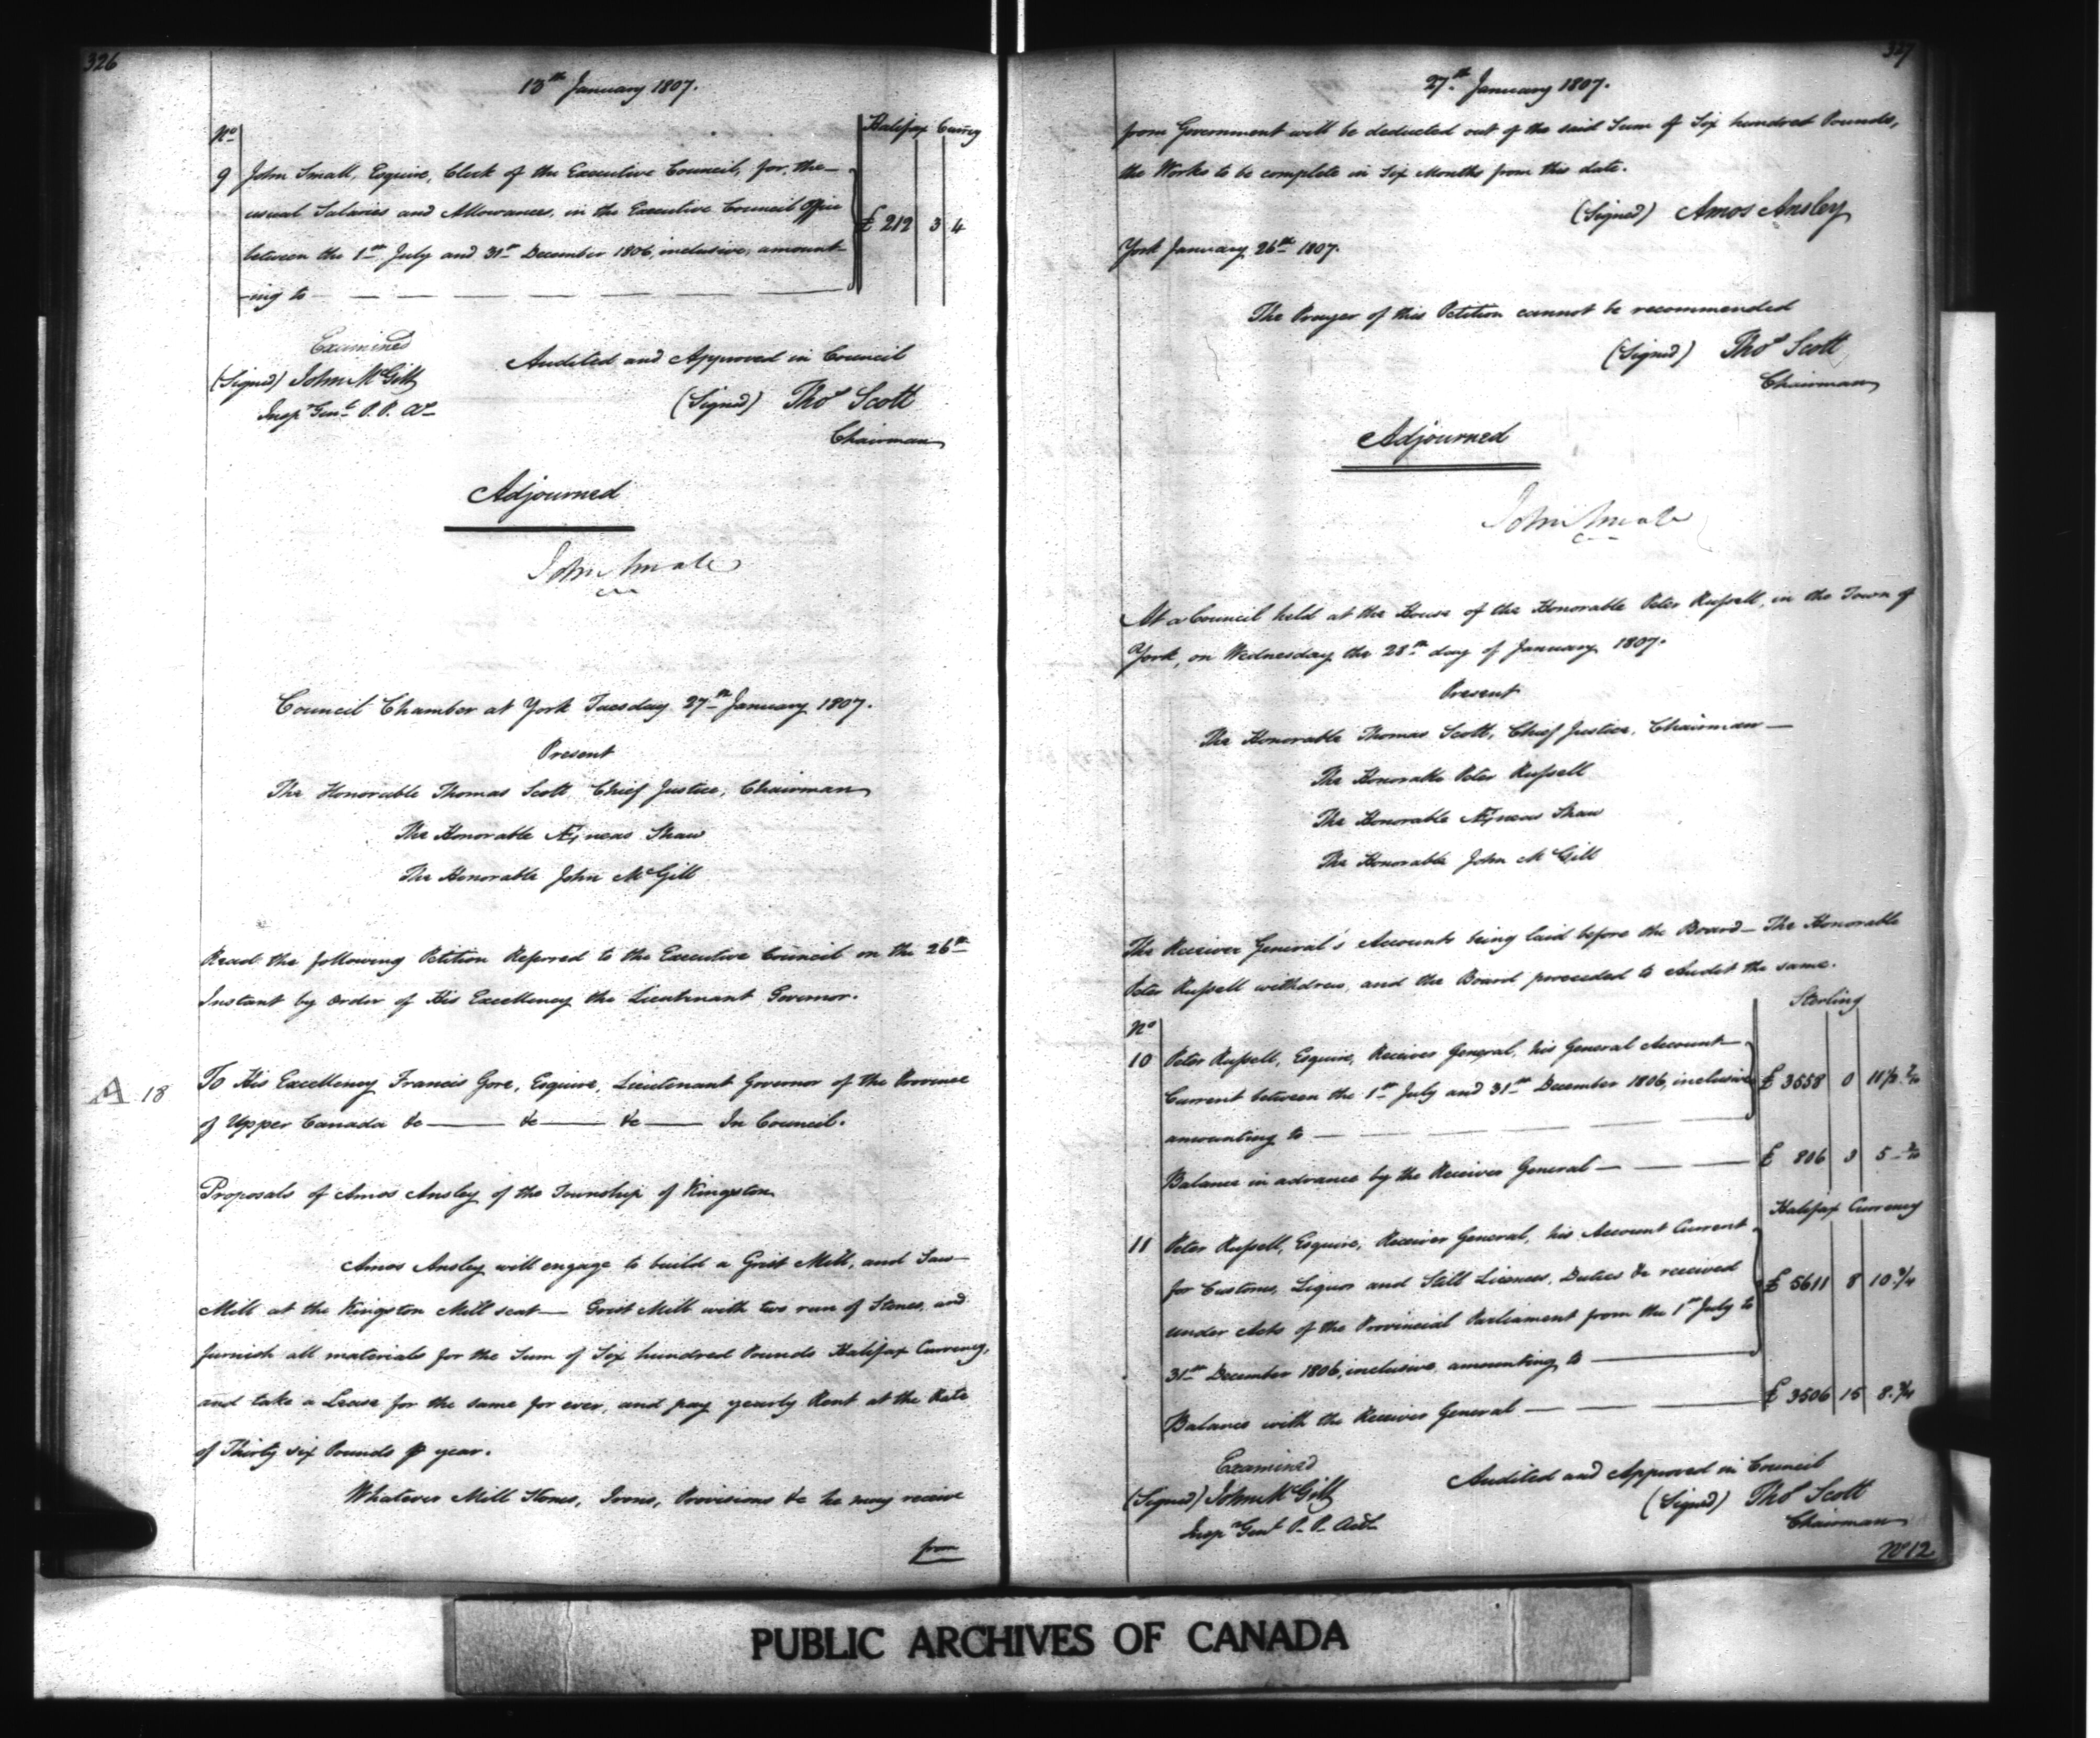 326
13th January 1807.
Halifax Curr'cy
No
9 John Small, Esquire, Clerk of the Executive Council, for the
usual Salaries and Allowances, in the Executive Council Office
between the 1st July and 31st December 1806, inclusive, amount-
-ing to £ 212 3 4
Examined
(Signed) John McGill
Insp. Genl. P. P. Ac
Audited and Approved in Council
(Signed) Thos Scott
Chairman
Adjourned
John Small
Council Chamber at York Tuesday 27th January 1807.
Present
The Honorable Thomas Scott, Chief Justice, Chairman
The Honorable Æneas Shaw
The Honorable John McGill
Read the following Petition Referred to the Executive Council on the 26th
Instant by Order of His Excellency the Lieutenant Governor.
A 18
To His Excellency Francis Gore, Esquire, Lieutenant Governor of the Province
of Upper Canada &c — &c — &c — In Council.
Proposals of Amos Ansley of the Township of Kingston
Amos Ansley will engage to build a Grist Mill, and Saw
Mill at the Kingston Mill seat — Grist Mill with two run of Stones, and
furnish all materials for the Sum of Six hundred Pounds Halifax Currency,
and take a Lease for the same for ever, and pay yearly Rent at the Rate
of Thirty six Pounds ⅌ year.
Whatever Mill Stones, Irons, Provisions &c he may receive
from
327
27th January 1807.
from Government will be deducted out of the said Sum of Six hundred Pounds,
the Works to be complete in Six Months from this date.
(Signed) Amos Ansley
York January 26th 1807.
The Prayer of this Petition cannot be recommended
(Signed) Thos Scott
Chairman
Adjourned
John Small
At a Council held at the House of the Honorable Peter Russell, in the Town of
York, on Wednesday the 28th day of January 1807.
Present
The Honorable Thomas Scott, Chief Justice, Chairman —
The Honorable Peter Russell
The Honorable Æneas Shaw
The Honorable John McGill
The Receiver General's Accounts being laid before the Board — The Honorable
Peter Russell withdrew, and the Board proceeded to Audit the same.
Sterling
No
10 Peter Russell, Esquire, Receiver General, his General Account
Current between the 1st July and 31st December 1806, inclusive £ 3558 0 11½ 2/10
amounting to
Balance in advance by the Receiver General — £ 806 3 5 - 2/10
Halifax Currency
11 Peter Russell, Esquire, Receiver General, his Account Current
for Customs, Liquor and Still Licences, Duties &c received £ 5611 8 10.¾
under Acts of the Provincial Parliament from the 1st July to
31st December 1806, inclusive, amounting to
Balance with the Receiver General — £ 3506 15 8.¾
Examined
(Signed) John McGill
Insp Genl P. P. Acts
Audited and Approved in Council
(Signed) Thos Scott
Chairman
No 12
PUBLIC ARCHIVES OF CANADA